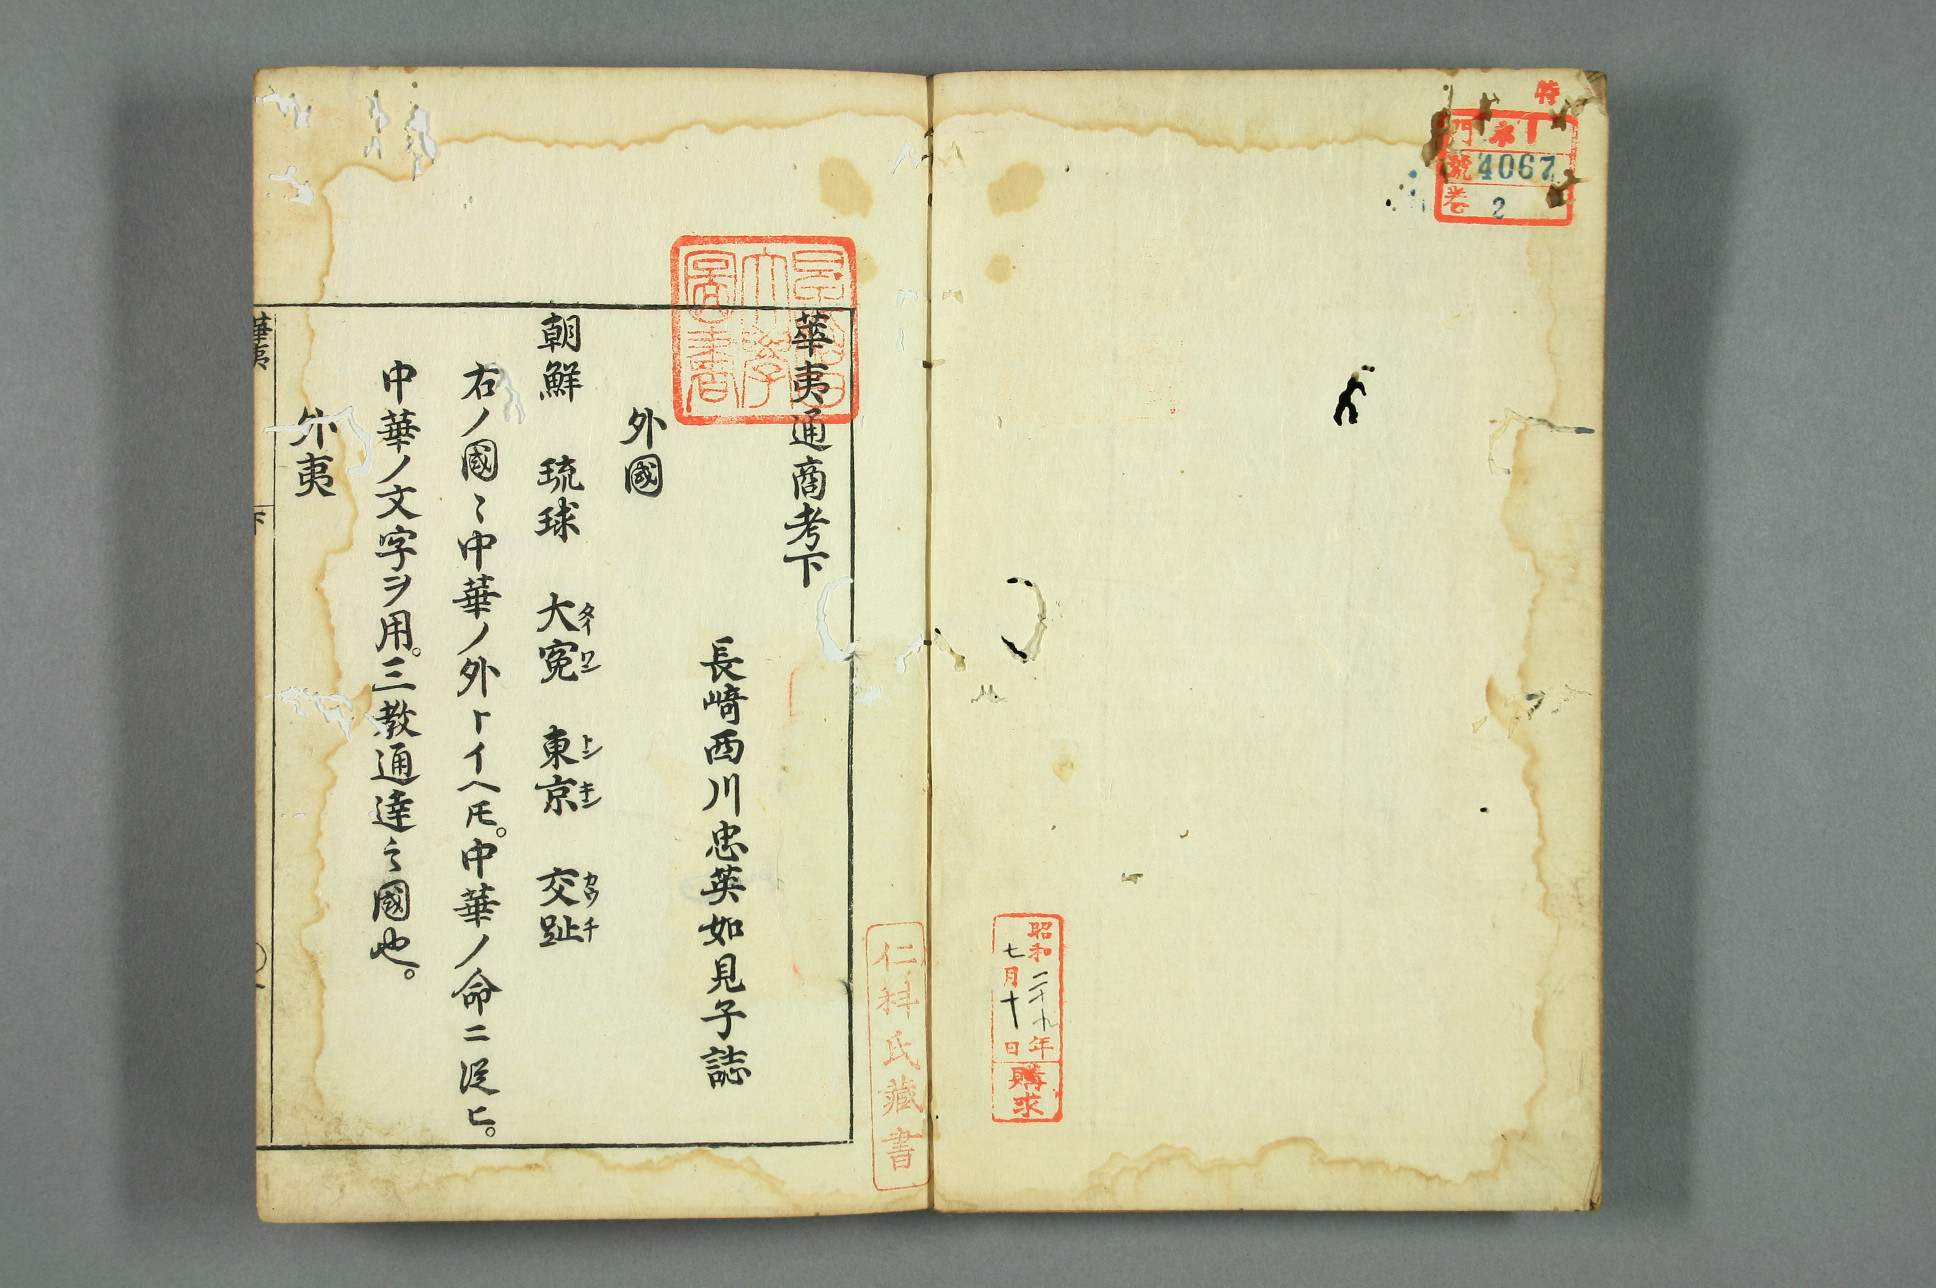 特
門 ネ1
號 4067
卷 2
昭和二十九年
七月十日
購求
仁科氏藏書
早稲田大學圖書
華夷通商考下
長崎西川忠英如見子誌
外國
朝鮮 琉球 大寃 東京 交趾
タイワン トンキン カウチ
右ノ國〻中華ノ外トイヘ𪜈。中華ノ命ニ従ヒ。
中華ノ文字ヲ用。三教通達之國也。
外夷
華夷 下